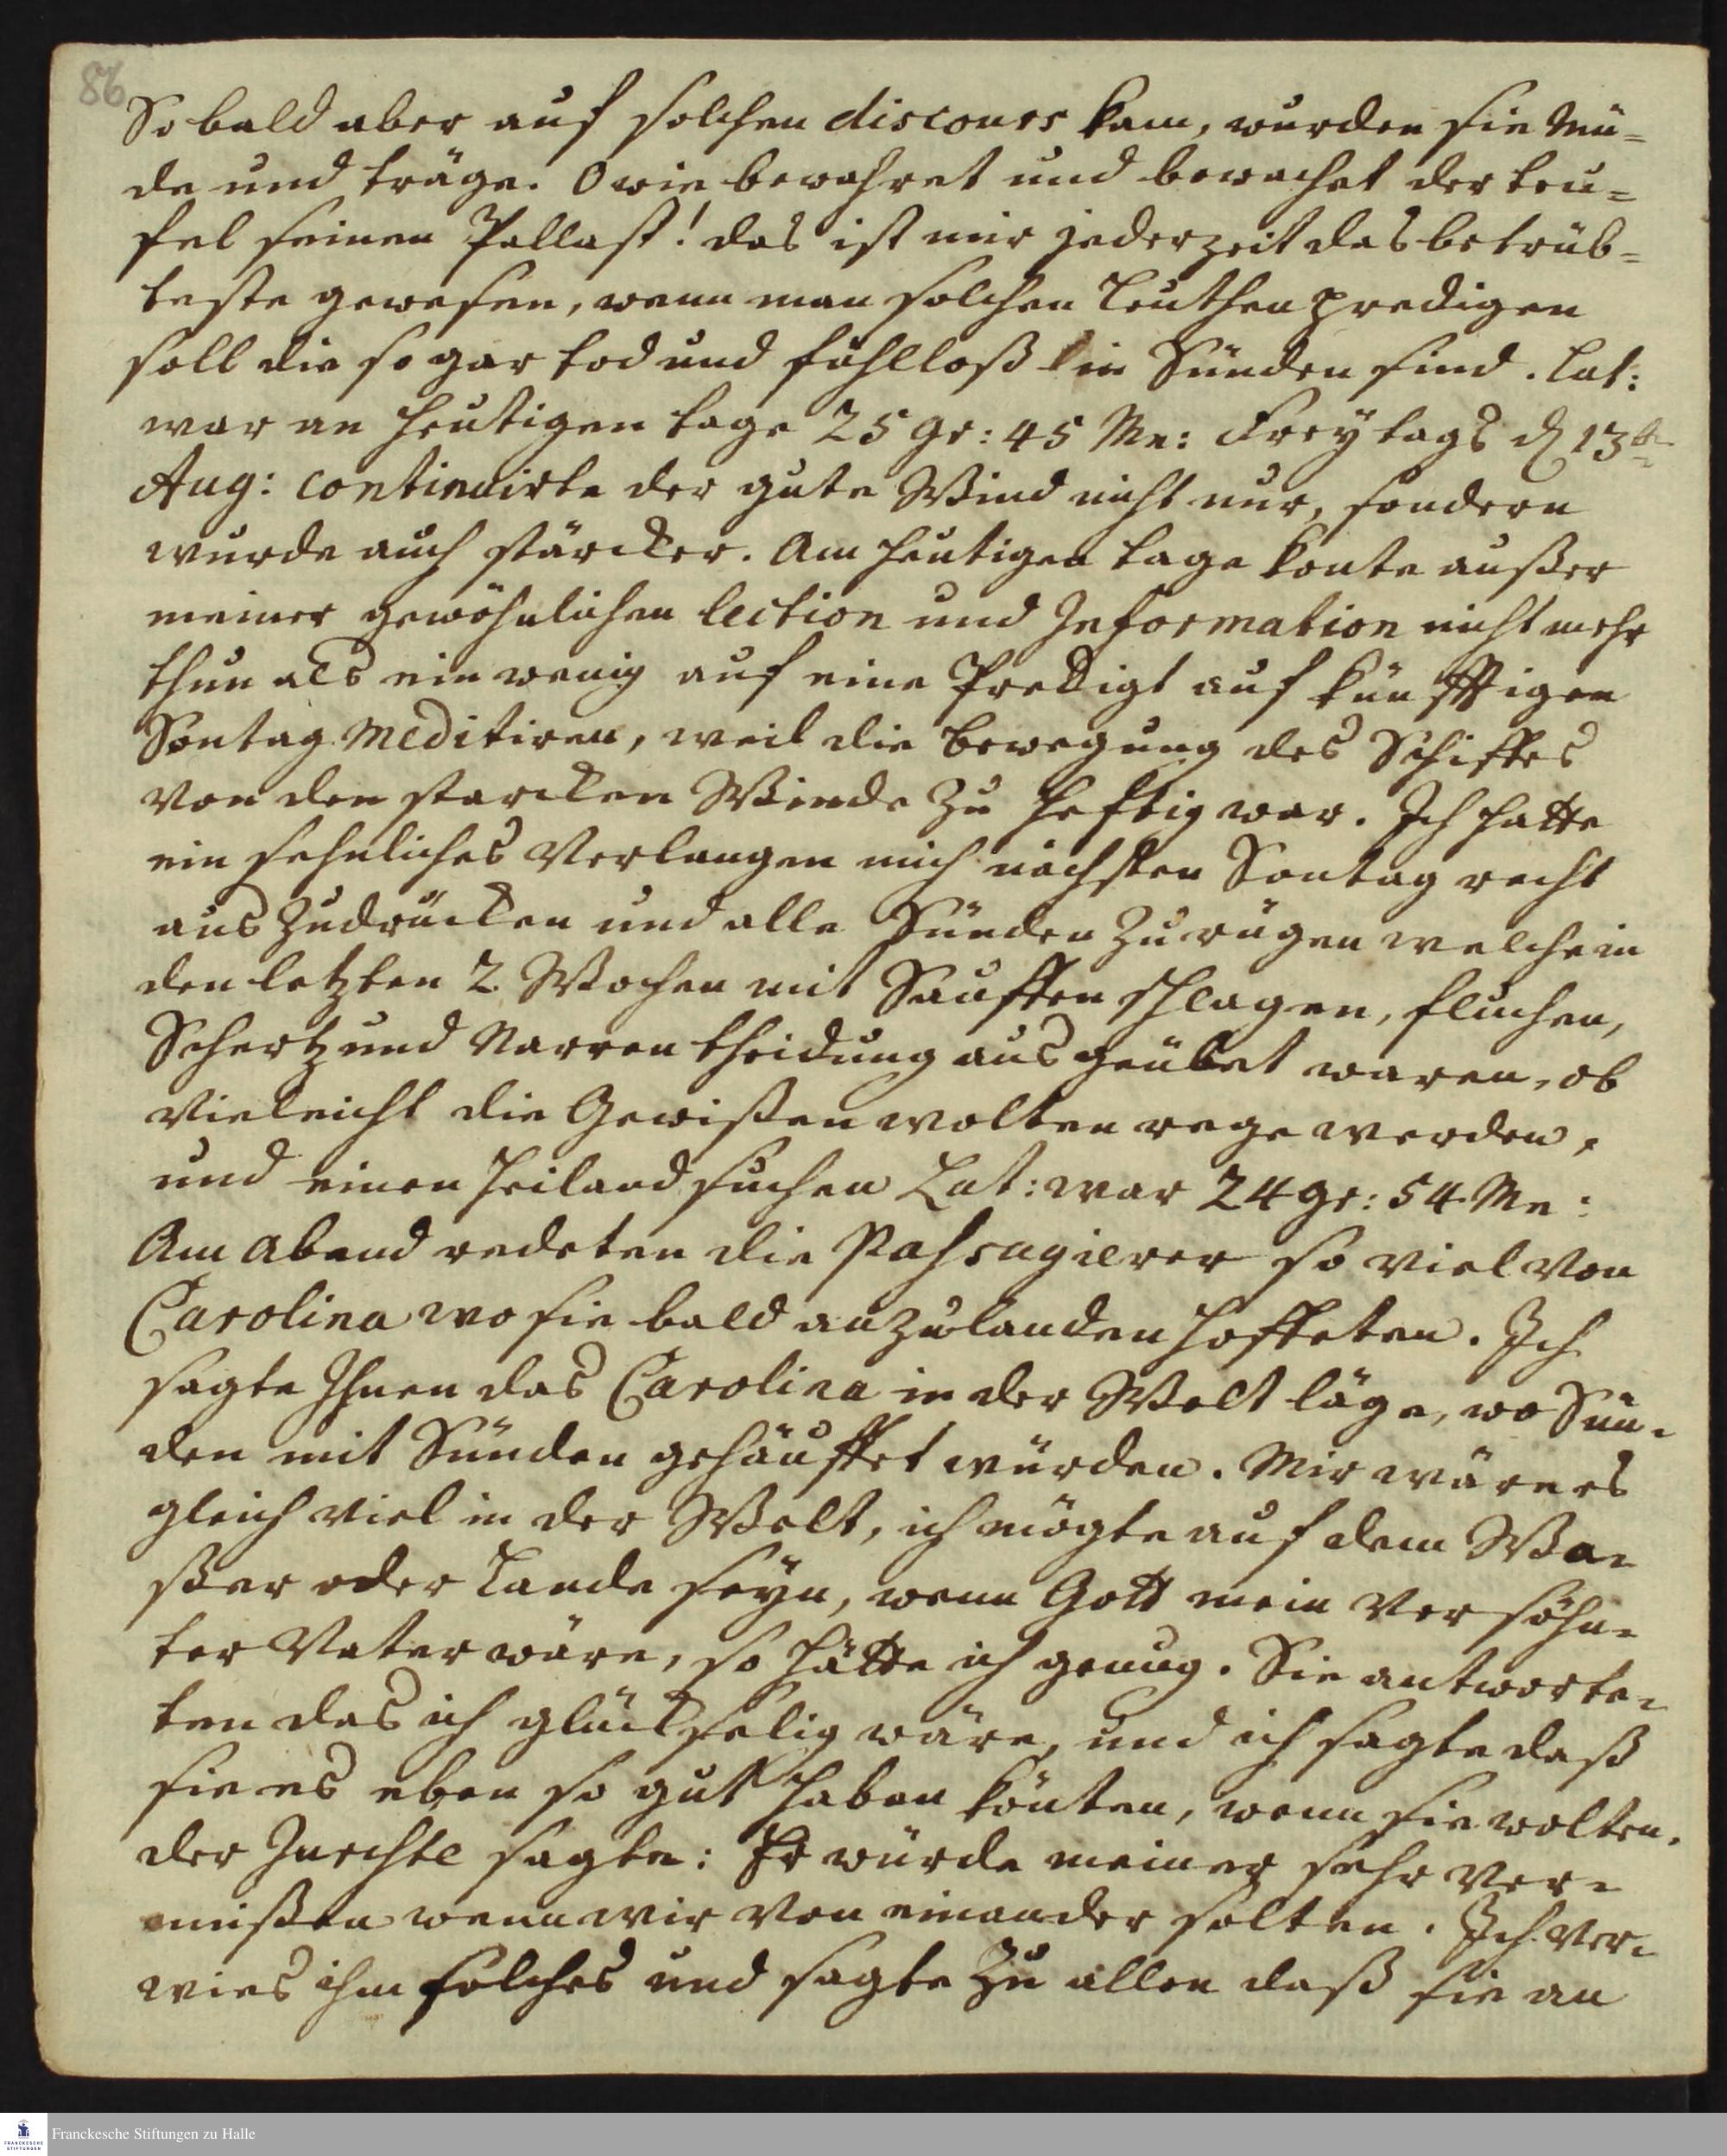 86
So bald aber auf solchen discours kam, wurden sie mü=
de und träge. O wie bewahret und bewachet der teu=
fel seinen Pallast! das ist mir jederzeit das betrüb=
teste gewesen, wenn man solchen Leuthen predigen
soll die so gar tod und fühlloß in Sünden sind. Lat:
war an heutigen tage 25 gr: 45 Mn: Freytags d 13te
Aug: continuirte der gute Wind nicht nur, sondern
wurde auch stärcker. Am heutigen tage konte außer
meiner gewöhnlichen lection und Information nicht mehr
thun als ein wenig auf eine Predigt auf künfftigen
Sontag meditiren, weil die bewegung des Schiffes
von den starcken Winde zu hefftig war. Ich hatte
ein sehnliches Verlangen mich nächsten Sontag recht
auszudrücken und alle Sünden zu rügen welche in
den letzten 2. Wochen mit Sauffen schlagen, fluchen,
Schertz und Narrentheidung ausgeübet waren, ob
vieleicht die Gewißen wolten rege werden,
und einen Heiland suchen Lat: war 24 gr: 54 Mn:
Am Abend redeten die Passagierer so viel von
Carolina wo sie bald anzulanden hoffeten. Ich
sagte Ihnen das Carolina in der Welt läge, wo Sün=
den mit Sünden gehäuffet würden. Mir wäre es
gleich viel in der Welt, ich mögte auf dem Wa=
ßer oder Lande seyn, wenn Gott mein versöhn=
ter Vater wäre, so hätte ich genug. Sie antworte=
ten das ich glückselig wäre, und ich sagte daß
sie es eben so gut haben könten, wenn sie wolten.
der Jurchte sagte: Er würde meiner sehr ver=
mißen wenn wir von einander solten. Ich ver=
wies ihm solches und sagte zu allen daß sie an
Franckesche Stiftungen zu Halle
FRANCKESCHE
STIFTUNGEN